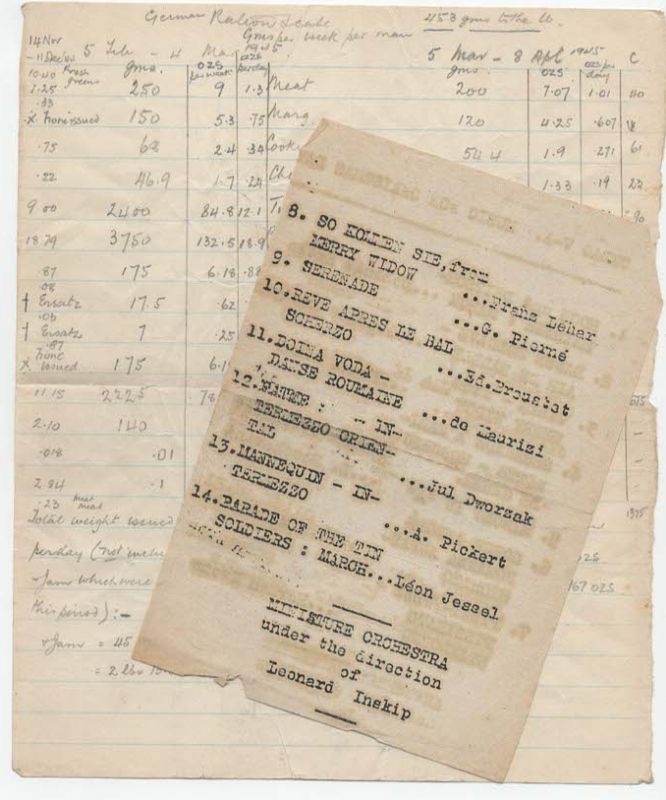 German Ration Scale
453 gms to the lb.
Gms per week per man
14 Nov
5 Feb - 4 Mar 1945
5 Mar - 8 Apl 1945
C
10.40 Fresh greens
gms.
ozs per week
ozs per day
gms.
ozs
ozs per day
7.25 250 9 1.3 Meat 200 7.07 1.01
.33
x None issued 150 5.3 .75 Marg 120 4.25 .607
.75 68 2.4 .34 54 4 1.9 .271 61
.22 46.9 1.7 .24 1.33 .19 22
9 00 2400 84.8 12.1 90
18.79 3750 132.5 18.9
.87 175 6.18 .88
.08
† Ersatz 17.5 .62
.03
† Ersatz 7 .25
.87
x None issued 175
11.15 2225 78
2.10 140
.018 .01
2.94 .1
.23 meat meal
1375
Total weight issued
per day (not inclu
- Jam which were
167 ozs
this period) :-
x Jam = 45
= 2 lbs
8. SO KOLLEN SIE, from
MERRY WIDOW ...Franz Léhar
9. SERENADE ...G. Pierné
10. REVE APRES LE BAL
SCHERZO ...Ed. Proustet
11. DOINA VODA -
DANSE ROUMAINE ...de Maurizi
12. : - IN-
TERLEZZO ORIEN-
TAL ...Jul Dworzak
13. MANNEQUIN - IN-
TERLEZZO ...A. Pickert
14. PARADE OF THE TIN
SOLDIERS : MARCH...Léon Jessel
MINISTURE ORCHESTRA
under the direction
of
Leonard Inskip